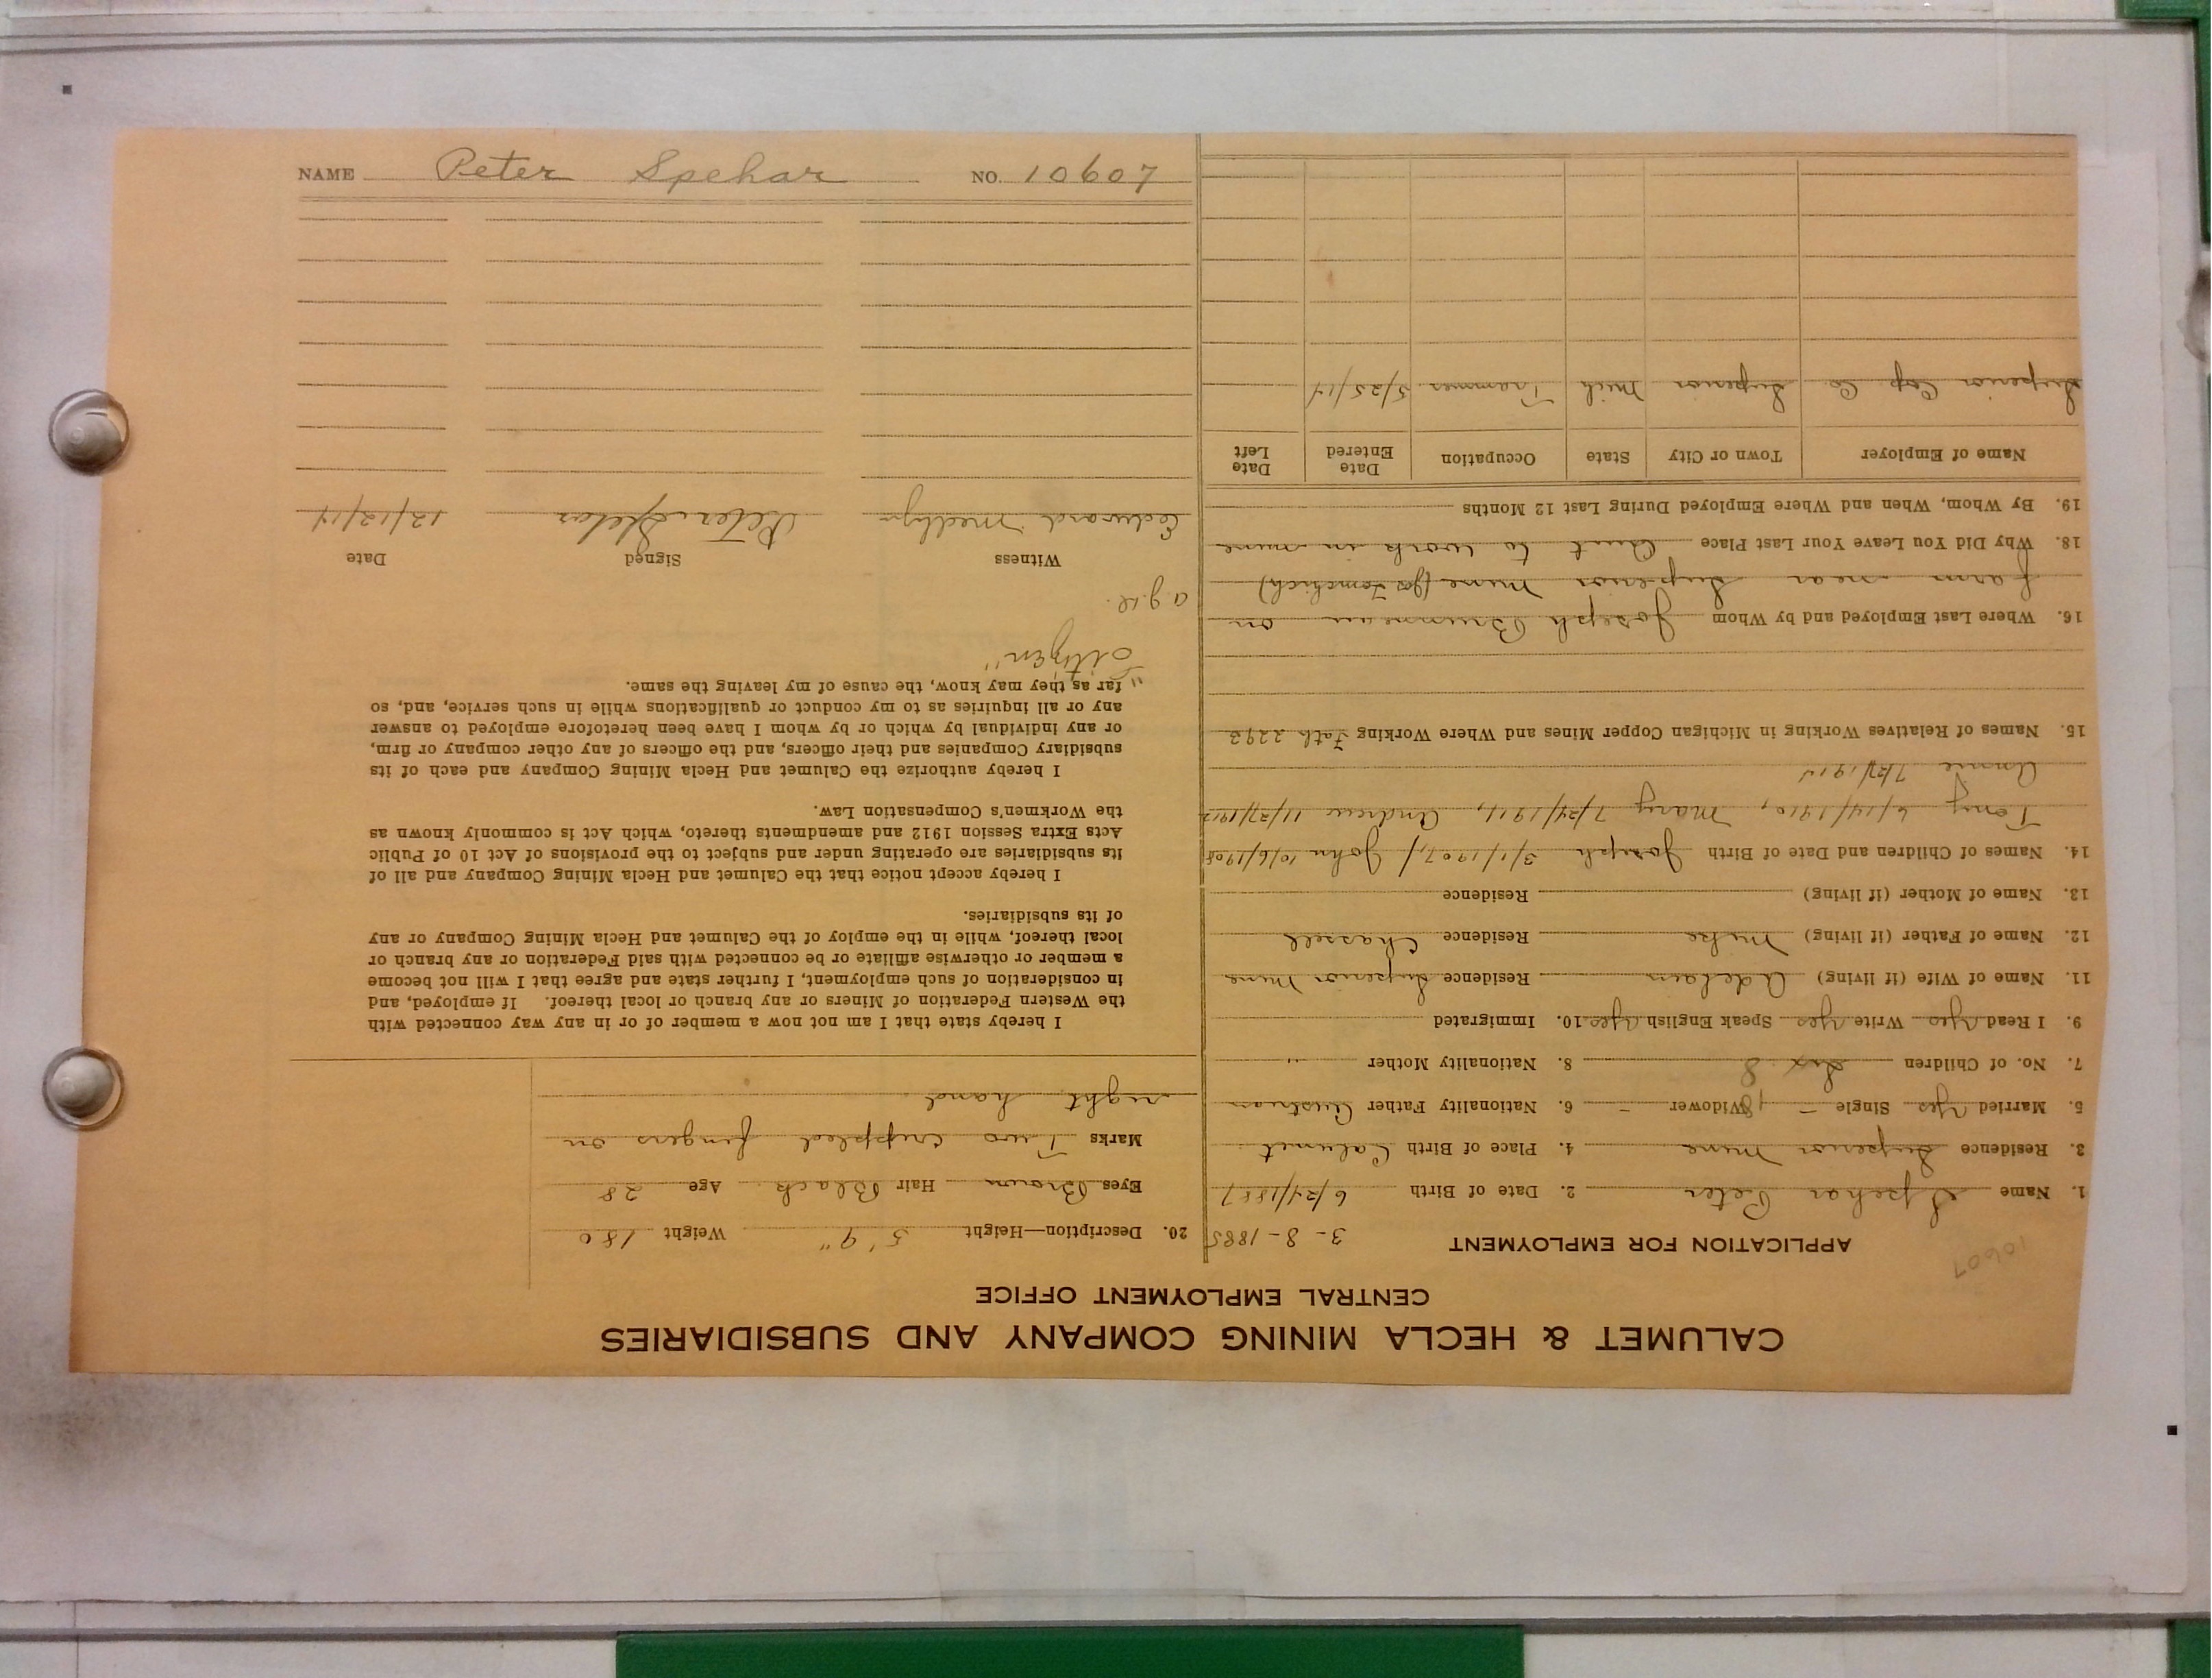 NAME Peter Spehar NO. 10607
CALUMET & HECLA MINING COMPANY AND SUBSIDIARIES
CENTRAL EMPLOYMENT OFFICE
10607
APPLICATION FOR EMPLOYMENT 3-8-1885
1. Name Spehar Peter 2. Date of Birth 6/24/1887
3. Residence Superior Mine 4. Place of Birth Calumet
5. Married Yes Single - Widower - 6. Nationality Father Austrian
7. No. of Children Six 8 8. Nationality Mother "
9. I Read Yes Write Yes Speak English Yes 10. Immigrated
11. Name of Wife (if living) Residence Superior Mine
12. Name of Father (if living) Mike Residence Chassell
13. Name of Mother (if living) Residence
14. Names of Children and Date of Birth Joseph 3/1/1907, John 10/6/1908
Tony 6/14/1910, Mary 7/24/1911, Andrew 11/27/1912
Annie
15. Names of Relatives Working in Michigan Copper Mines and Where Working Fath 2293
16. Where Last Employed and by Whom Joseph on
farm near Superior Mine
18. Why Did You Leave Your Last Place to work in mine
19. By Whom, When and Where Employed During Last 12 Months
Name of Employer Town or City State Occupation Date Entered Date Left
Superior Cop. Co. Superior Mich Trammer 5/25/14
20. Description—Height 5' 9" Weight 180
Eyes Brown Hair Black Age 28
Marks Two crippled fingers on
right hand
I hereby state that I am not now a member of or in any way connected with
the Western Federation of Miners or any branch or local thereof. If employed, and
in consideration of such employment, I further state and agree that I will not become
a member or otherwise affiliate or be connected with said Federation or any branch or
local thereof, while in the employ of the Calumet and Hecla Mining Company or any
of its subsidiaries.
I hereby accept notice that the Calumet and Hecla Mining Company and all of
its subsidiaries are operating under and subject to the provisions of Act 10 of Public
Acts Extra Session 1912 and amendments thereto, which Act is commonly known as
the Workmen's Compensation Law.
I hereby authorize the Calumet and Hecla Mining Company and each of its
subsidiary Companies and their officers, and the officers of any other company or firm,
or any individual by which or by whom I have been heretofore employed to answer
any or all inquiries as to my conduct or qualifications while in such service, and, so
far as they may know, the cause of my leaving the same.
"Citizen"
Witness Signed Date
Edward Medlyn Peter Spehar 12/12/14